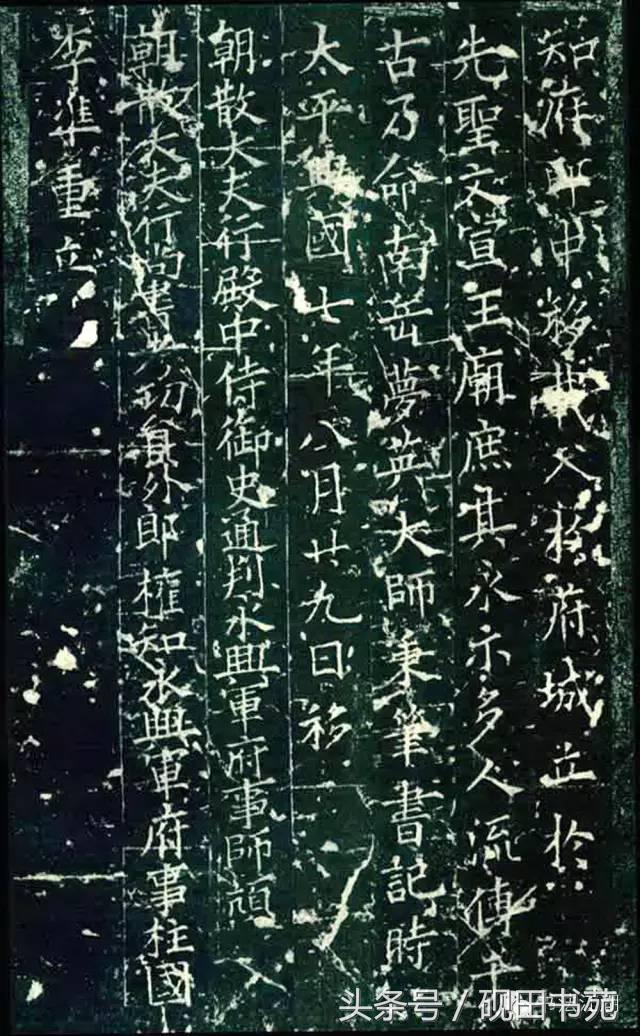 知府即申移載入於府城立於
先聖文宣王廟庶其永示多人流傳千
古乃命南岳夢英大師秉筆書記時
太平興國七年八月廿九日移
朝散大夫行殿中侍御史通判永興軍府事師頏
朝散大夫行尚書兵部員外郎權知永興軍府事柱國
李準重立
头条号／砚田书苑